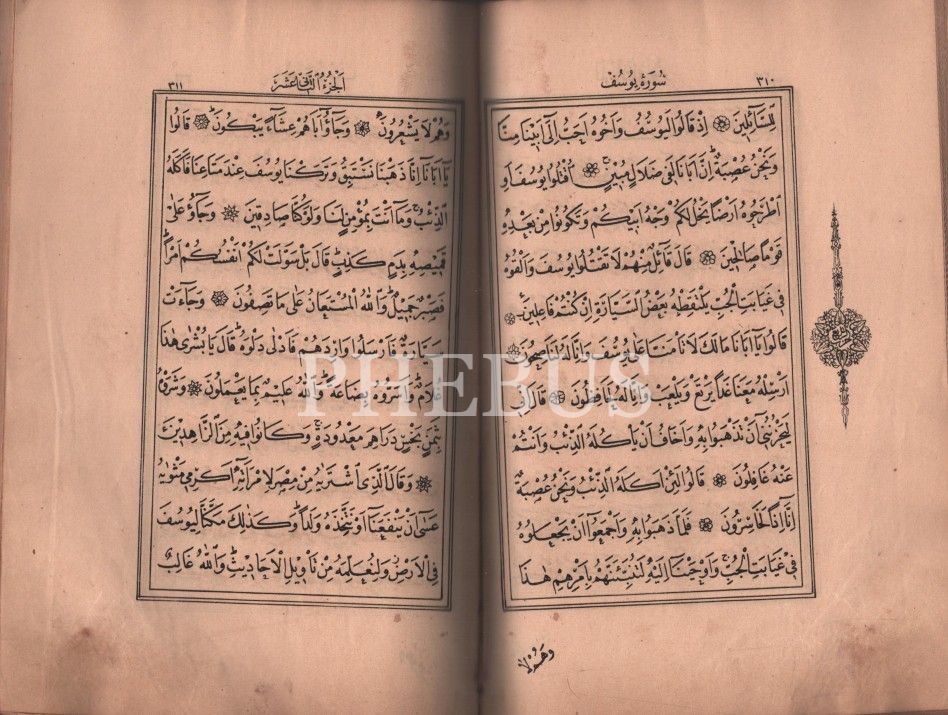 ٣١٠
سُورَةُ يُوسُفَ
لِلسَّآئِلِينَ ۞ اِذْ قَالُوا لَيُوسُفُ وَاَخُوهُ اَحَبُّ اِلٰٓى اَبِينَا مِنَّا
وَنَحْنُ عُصْبَةٌ اِنَّ اَبَانَا لَفِى ضَلَالٍ مُبِينٍ ۞ اُقْتُلُوا يُوسُفَ اَوِ
اطْرَحُوهُ اَرْضًا يَخْلُ لَكُمْ وَجْهُ اَبِيكُمْ وَتَكُونُوا مِنْ بَعْدِهِ
قَوْمًا صَالِحِينَ ۞ قَالَ قَآئِلٌ مِنْهُمْ لَا تَقْتُلُوا يُوسُفَ وَاَلْقُوهُ
فِى غَيَابَتِ الْجُبِّ يَلْتَقِطْهُ بَعْضُ السَّيَّارَةِ اِنْ كُنْتُمْ فَاعِلِينَ ۞
قَالُوا يَٓا اَبَانَا مَالَكَ لَا تَاْمَنَّا عَلٰى يُوسُفَ وَاِنَّا لَهُ لَنَاصِحُونَ ۞
اَرْسِلْهُ مَعَنَا غَدًا يَرْتَعْ وَيَلْعَبْ وَاِنَّا لَهُ لَحَافِظُونَ ۞ قَالَ اِنِّى
لَيَحْزُنُنِٓى اَنْ تَذْهَبُوا بِهِ وَاَخَافُ اَنْ يَاْكُلَهُ الذِّئْبُ وَاَنْتُمْ
عَنْهُ غَافِلُونَ ۞ قَالُوا لَئِنْ اَكَلَهُ الذِّئْبُ وَنَحْنُ عُصْبَةٌ
اِنَّٓا اِذًا لَخَاسِرُونَ ۞ فَلَمَّا ذَهَبُوا بِهِ وَاَجْمَعُٓوا اَنْ يَجْعَلُوهُ
فِى غَيَابَتِ الْجُبِّ وَاَوْحَيْنَٓا اِلَيْهِ لَتُنَبِّئَنَّهُمْ بِاَمْرِهِمْ هٰذَا
وَهُمْ لَا
٣١١
اَلْجُزْءُ الثَّانِى عَشَرَ
وَهُمْ لَا يَشْعُرُونَ ۞ وَجَٓاؤُٓا اَبَاهُمْ عِشَٓاءً يَبْكُونَ ۞ قَالُوا
يَٓا اَبَانَٓا اِنَّا ذَهَبْنَا نَسْتَبِقُ وَتَرَكْنَا يُوسُفَ عِنْدَ مَتَاعِنَا فَاَكَلَهُ
الذِّئْبُ وَمَٓا اَنْتَ بِمُؤْمِنٍ لَنَا وَلَوْ كُنَّا صَادِقِينَ ۞ وَجَٓاؤُ عَلٰى
قَمِيصِهِ بِدَمٍ كَذِبٍ قَالَ بَلْ سَوَّلَتْ لَكُمْ اَنْفُسُكُمْ اَمْرًا
فَصَبْرٌ جَمِيلٌ وَاللّٰهُ الْمُسْتَعَانُ عَلٰى مَا تَصِفُونَ ۞ وَجَٓاءَتْ
سَيَّارَةٌ فَاَرْسَلُوا وَارِدَهُمْ فَاَدْلٰى دَلْوَهُ قَالَ يَا بُشْرٰى هٰذَا
غُلَامٌ وَاَسَرُّوهُ بِضَاعَةً وَاللّٰهُ عَلِيمٌ بِمَا يَعْمَلُونَ ۞ وَشَرَوْهُ
بِثَمَنٍ بَخْسٍ دَرَاهِمَ مَعْدُودَةٍ وَكَانُوا فِيهِ مِنَ الزَّاهِدِينَ
۞ وَقَالَ الَّذِى اشْتَرٰيهُ مِنْ مِصْرَ لِامْرَاَتِهِٓ اَكْرِمِى مَثْوٰيهُ
عَسٰٓى اَنْ يَنْفَعَنَٓا اَوْ نَتَّخِذَهُ وَلَدًا وَكَذٰلِكَ مَكَّنَّا لِيُوسُفَ
فِى الْاَرْضِ وَلِنُعَلِّمَهُ مِنْ تَاْوِيلِ الْاَحَادِيثِ وَاللّٰهُ غَالِبٌ
PHEBUS